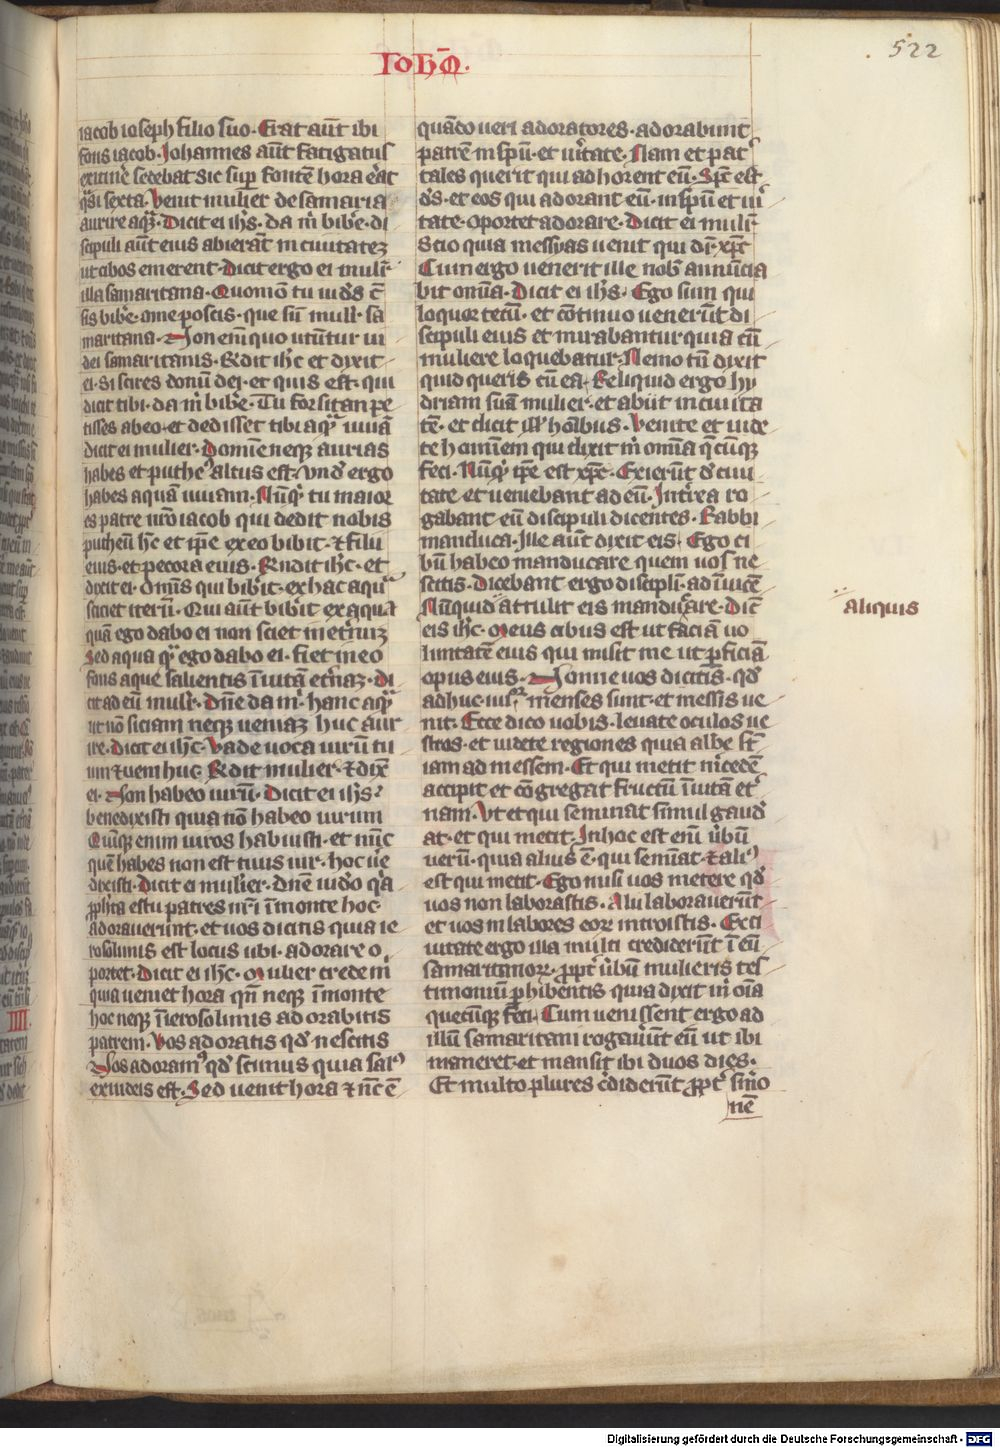 522
Ioħō.
iacob ioseph filio suo. Erat aūt ibi
fons iacob. Johannes aūt fatigatus
ex itin̄e sedebat sic sup̄ fontē hora er̄at
q̄si sexta. Venit mulier de samaria
aurire aq̄. Dicit ei ih̄s. da m̄ bib̄e. di
scipuli aūt eius abierāt in ciuitatez
ut cibos emerent. Dicit ergo ei muli͛
illa samaritana. Quomō tu iud̄s c̄
sis bib̄e. a me poscis. que sū mull͛. sa
maritana. Non em̄ quo utūtur iu
dei samaritanis. Rdit ih̄c et dixit
ei. Si scires donū dei. et quis est. qui
dicit tibi. da m̄ bib̄e. Tu forsitan pe
tisses ab eo. et dedisset tibi aq̄ uiuā
Dicit ei mulier. Domīe neqꝫ aurias
habes et puthe᷒ altus est. Vnd͛ ergo
habes aquā uiuam. Nūq͛ tu maior
es patre nr̄o iacob qui dedit nobis
putheū h̄c et ip̄e ex eo bibit. ⁊ filii
eius. et pecora eius. Rndit ih̄c. et
dixit ei. Om̄is qui bib͛it. ex hac aqu͛
siciet iterū. Qui aūt bib͛it ex aqua
quā ego dabo ei non sciet in et͛nuꝫ
Sed aqua q͛ ego dabo ei. fiet in eo
fons aque salientis ī uitā et͛naꝫ. Di
cit ad eū muli͛. Dn̄e da m̄. hanc aq͛
ut nō siciam neqꝫ ueniaꝫ huc aur
ire. Dicit ei ih̄c. Vade uoca uirū tu
um ⁊ uem huc. Rdit mulier. ⁊ dix̄
ei. Non habeo uirū. Dicit ei ih̄s.
benedixisti quia nō habeo uirum
Quinqꝫ enim uiros habuisti. et nūc
quē habes non est tuus uir. hoc ue͛
dixisti. Dicit ei mulier. dn̄e uid͛o q͛a
ꝓph̄ta es tu patres nr̄i ī monte hoc
adorauerunt. et uos dicitis quia ie
rosolimis est locus ubi. adorare o
portet. Dicit ei ih̄c. Mulier crede m̄
quia ueniet hora qn̄ neqꝫ ī monte
hoc neqꝫ ī ierosolimis adorabitis
patrem. Vos adoratis qd͛ nescitis
Nos adoram᷒ qd͛ scimus quia sal᷒
ex iudeis est. Sed uenit hora ⁊ nūc ē
quādo ueri adoratores. adorabunt
patrē in sp̄u. et u͛itate. Nam et pat͛
tales querit qui adhorent eū. Sp̄c est
d͛s. et eos qui adorant eū. in sp̄u et u͛i
tate. oportet adorare. Dicit ei muli͛
Scio quia messyas uenit qui d͛r. xp̄c
Cum ergo uenerit ille nob̄ annūcia
bit om̄a. Dicit ei ih̄s. Ego sum qui
loquor tecū. et cōtinuo uenerūt di
scipuli eius et mirabantur quia cū
muliere loquebatur. Nemo tn̄ dixit
quid queris cū ea. Reliquid ergo hy
driam suā mulier. et abiit in ciuita
tē. et dicit ill᷒ hoībus. Venite et uide
te hominem qui dixit m̄ omīa q̄cūqꝫ
feci. Nūq͛ ip̄e est xp̄c. Exierūt d͛ ciui
tate et ueniebant ad eū. Int͛rea ro
gabant eū discipuli dicentes. Rabbi
manduca. Ille aūt dixit eis. Ego ci
bū habeo manducare quem uos ne
scitis. Dicebant ergo discipl͛i. ad īuicē
Nūquid attulit eis manduc͛are. Dic̄
eis ih̄c. Meus cibus est ut faciā uo
luntatē eius qui misit me ut ꝑficiā
opus eius. Nonne uos dicitis. qd͛
adhuc. iiijor. menses sunt. et messis ue
nit. Ecce dico uobis. leuate oculos ue
stros. et uidete regiones quia albe st̄
iam ad messem. Et qui metit m͛cedē
accipit et cōgregat fructū ī uitā et͛
nam. Vt et qui seminat simul gaud͛
at. et qui metit. In hoc est enī ub̄um
uerū. quia alius ē. qui semīat. ⁊ ali᷒
est qui metit. Ego misi uos metere qd͛
uos non laborastis. Alii laborauerūt
et uos in labores eoꝝ introistis. Ex ci
uitate ergo illa multi crediderūt ī eū
samaritanoꝝ. ꝓpt͛ ub̄um mulieris tes
timonium ꝑhibentis quia dixit m̄ oīa
quecūqꝫ feci. Cum uenissent ergo ad
illū samaritani rogau͛unt eū ut ibi
maneret. et mansit ibi duos dies.
Et multo plures c͛diderūt ꝓpt͛ s͛mo
nē
aliquis
Digitalisierung gefördert durch die Deutsche Forschungsgemeinschaft - DFG